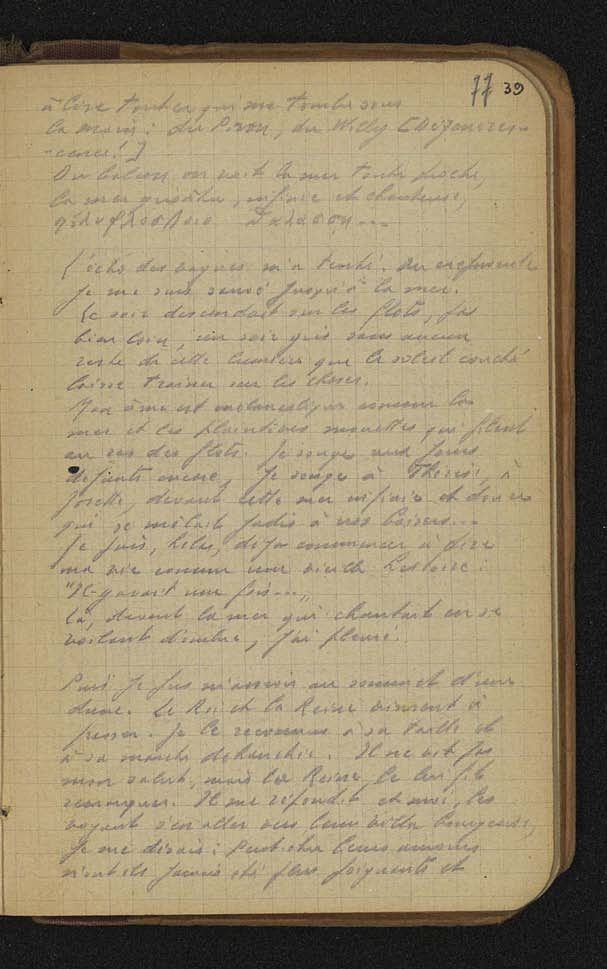 77 39
à lire tout ce qui me tombe sous
la main : du Piron, du Willy [Déjanires-
-cence!]
Du balcon on voit la mer toute proche,
la mer grisâtre, infinie et chanteuse,
L'écho des vagues m'a tenté. Au crépuscule
je me suis sauvé jusqu'à la mer.
Le soir descendait sur les flots, pas
bien loin, un soir gris sans aucun
reste de cette lumière que le soleil couché
laisse trainer sur les choses.
Mon âme est mélancolique comme la
mer et les plaintives mouettes qui filent
au ras des flots. Je songe aux jours
défunts encore, Je songe à Thérèse, à
Josette, devant cette mer infinie et douce
qui se mêlait jadis à nos baisers...
Je puis, hélas, déjà commencer à dire
ma vie comme une vieille histoire :
"Il y avait une fois...,,
Là, devant la mer qui chantait en se
voilant d'ombre, j'ai pleuré.
Puis je fus m'asseoir au sommet d'une
dune. Le Roi et la Reine vinrent à
passer. Je le reconnus à sa taille et
à sa marche déhanchée. Il ne vit pas
mon salut, mais la Reine le lui fit
remarquer. Il me répondit et moi, les
voyant s'en aller vers leur villa bourgeoise,
je me disais : Peut-être leurs amours
n'ont-ils jamais été plus poignants et